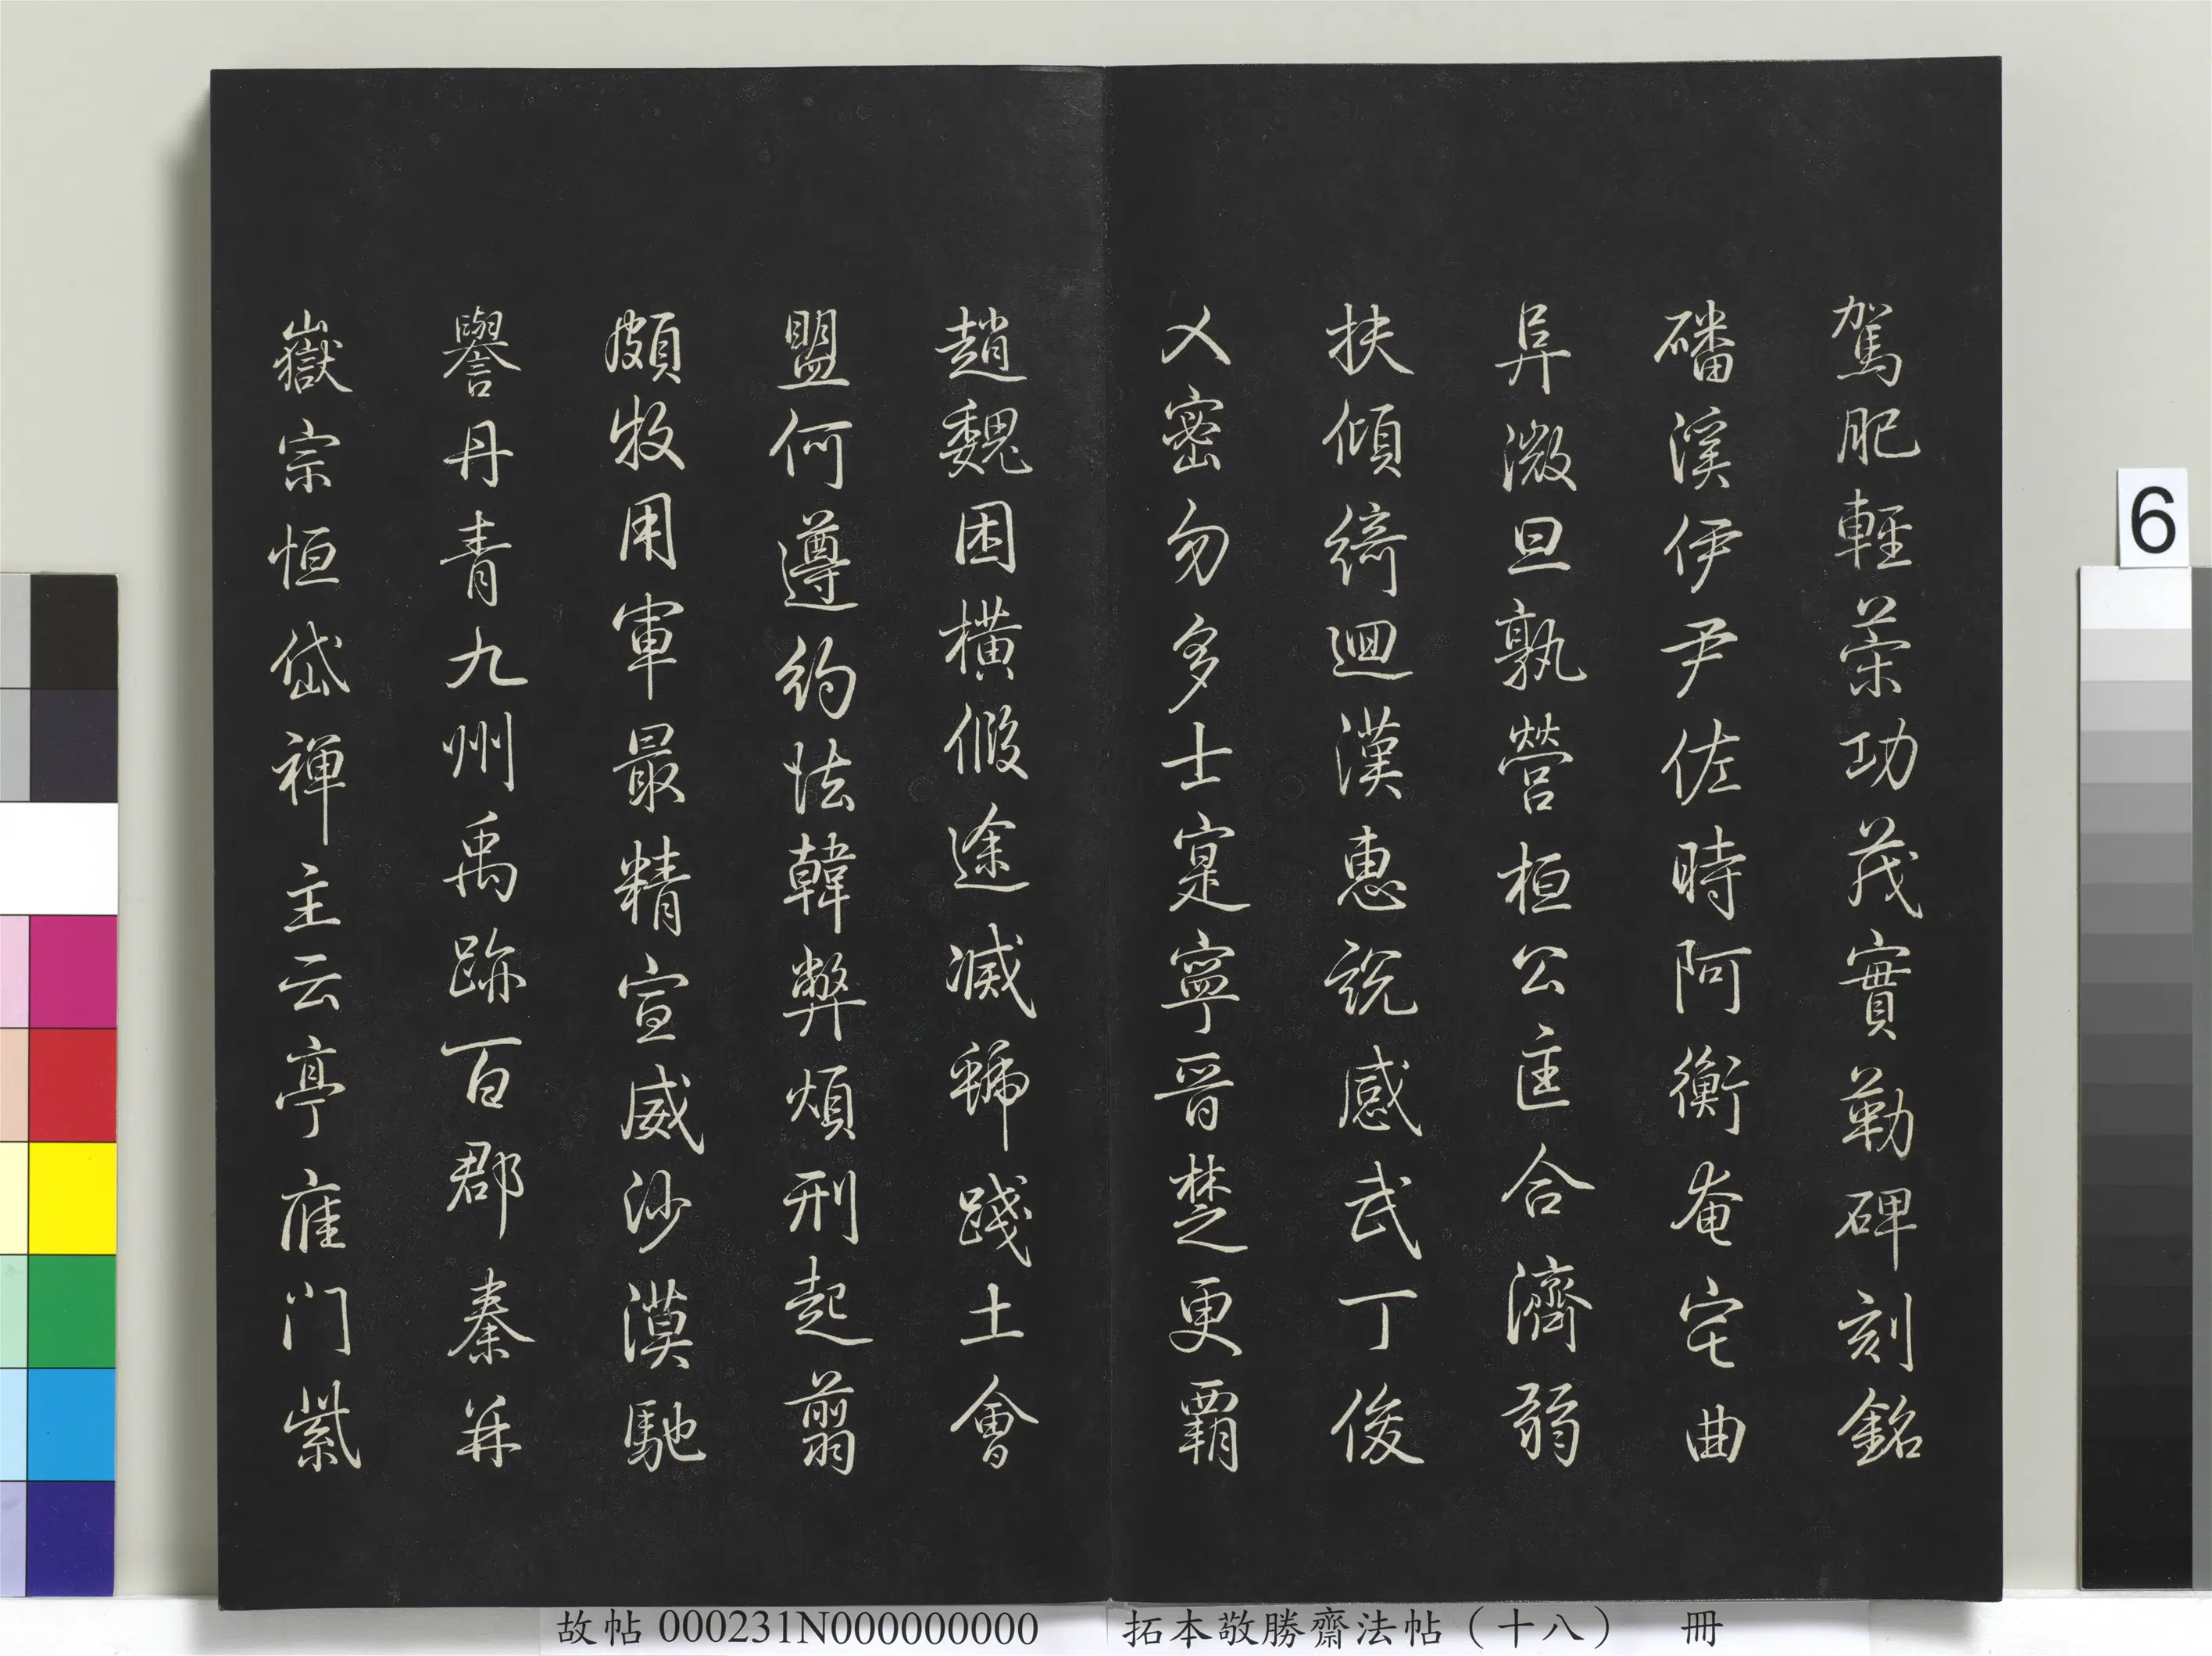 駕肥輕策功茂實勒碑刻銘
磻溪伊尹佐時阿衡奄宅曲
阜微旦孰營桓公匡合濟弱
扶傾綺迴漢惠說感武丁俊
乂密勿多士寔寧晉楚更霸
趙魏困橫假途滅虢踐土會
盟何遵約法韓弊煩刑起翦
頗牧用軍最精宣威沙漠馳
譽丹青九州禹跡百郡秦并
嶽宗恒岱禪主云亭雁门紫
6
故帖 000231N000000000 拓本敬勝齋法帖（十八） 冊